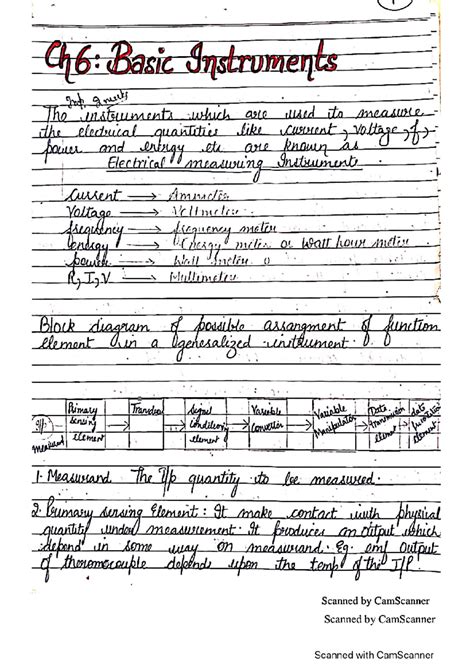 Ch6: Basic Instruments
Imp 2 marks
The instruments which are used to measure
the electrical quantities like current, voltage, f,
power and energy etc are known as
Electrical measuring Instrument
Current → Ammeter
Voltage → Voltmeter
frequency → frequency meter
energy → Energy meter or Watt hour meter
power → Watt meter
R, I, V → Multimeter
Block diagram of possible assangment of function
element in a generalized instrument
I/p → Primary sensing element Signal conditioning element Variable Convertor Variable Manipulator Data transmission element
Measurand
1. Measurand The I/p quantity to be measured.
2. Primary sensing Element: It make contact with physical
quantity under measurement. It produces an output which
depend in some way on measurand. Eg. emf output
of thermocouple depends upon the temp of the I/P.
Scanned by CamScanner
Scanned by CamScanner
Scanned with CamScanner